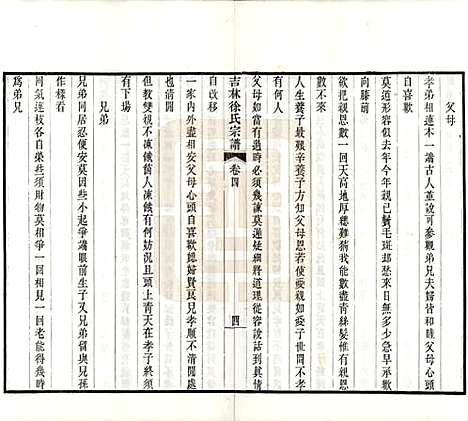 父母
孝弟相連本一端古人董說可參觀弟兄夫婦皆和順父母心頭
自喜歡
莫道形容似去年今年親已鬢毛斑却愁來日無多少急早承歡
向膝前
欲把親恩數一回天高地厚總難猜我能數盡靑絲髮惟有親恩
數不來
人生養子最艱辛養子方知父母恩若使愛親如愛子世間不孝
有何人
父母當有過時必須幾諫莫遲疑細將道理從容說話到眞情
自改移
吉林徐氏宗譜 卷四 四
一家內外盡相安父母心頭自喜歡媳婦賢良兒孝順不淸閒處
也淸閒
但教雙親不凍餓舊人凍餓有何妨況且上靑天在孝子終須
有下場
兄弟
兄弟同居忍便安莫因些小起爭端眼前生子又兄弟留與兒孫
作樣看
同氣連枝各自榮些須財物莫相爭一回相見一回老能得幾時
爲弟兄